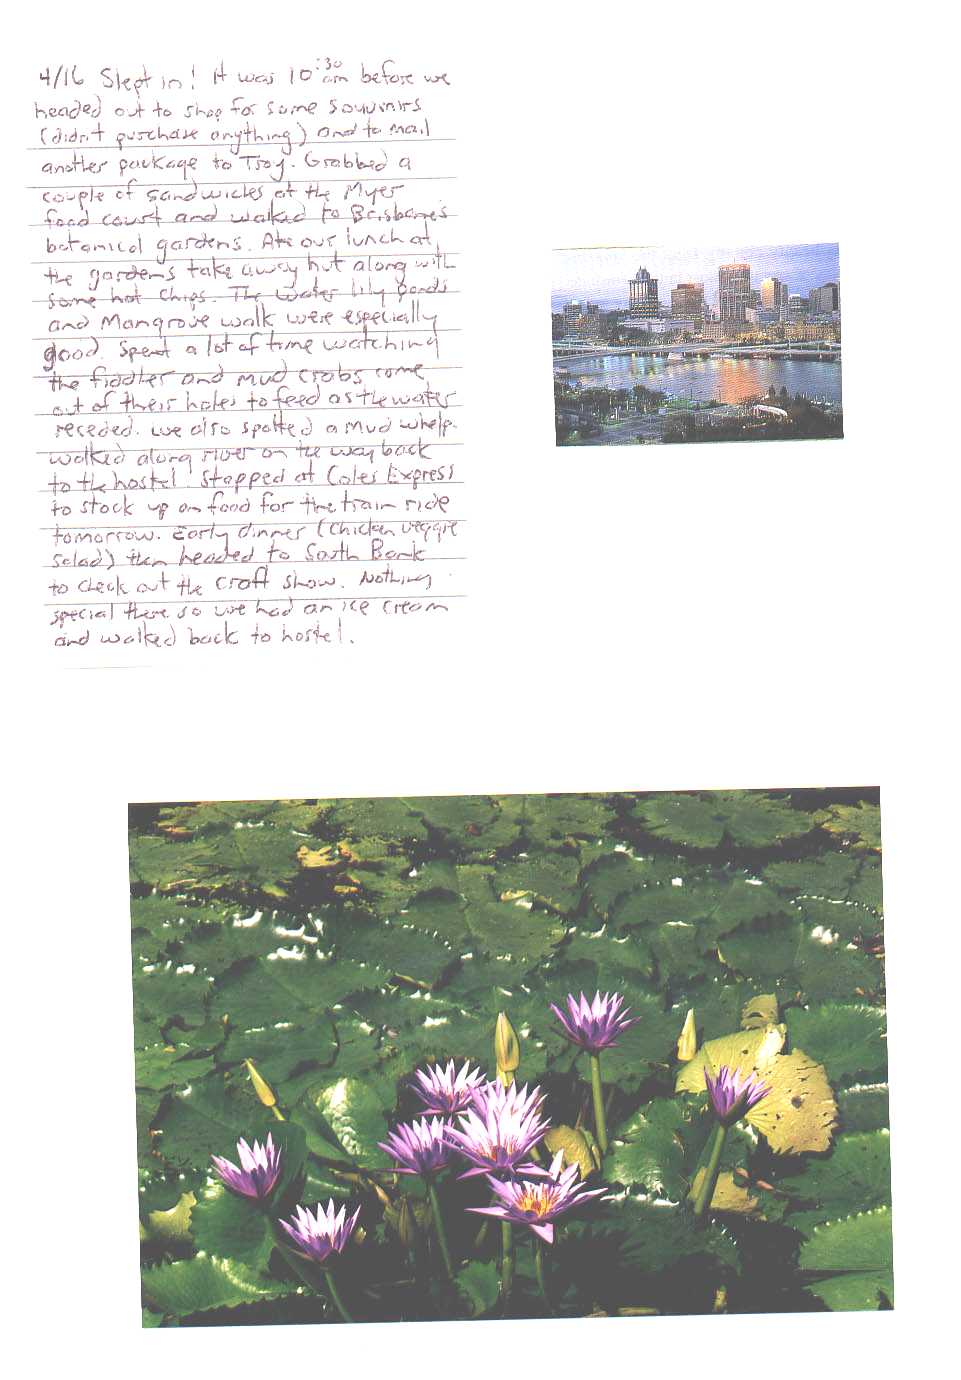 4/16 Slept in! It was 10:30 am before we
headed out to shop for some souvenirs
(didn't purchase anything) and to mail
another package to Troy. Grabbed a
couple of sandwiches at the Myer
food court and walked to Brisbane's
botanical gardens. Ate our lunch at
the gardens take away hut along with
some hot chips. The water lily ponds
and Mangrove walk were especially
good. Spent a lot of time watching
the fiddler and mud crabs come
out of their holes to feed as the water
receded. We also spotted a mud whelp.
Walked along river on the way back
to the hostel. Stopped at Coles Express
to stock up on food for the train ride
tomorrow. Early dinner (chicken veggie
salad) then headed to South Bank
to check out the craft show. Nothing
special there so we had an ice cream
and walked back to hostel.